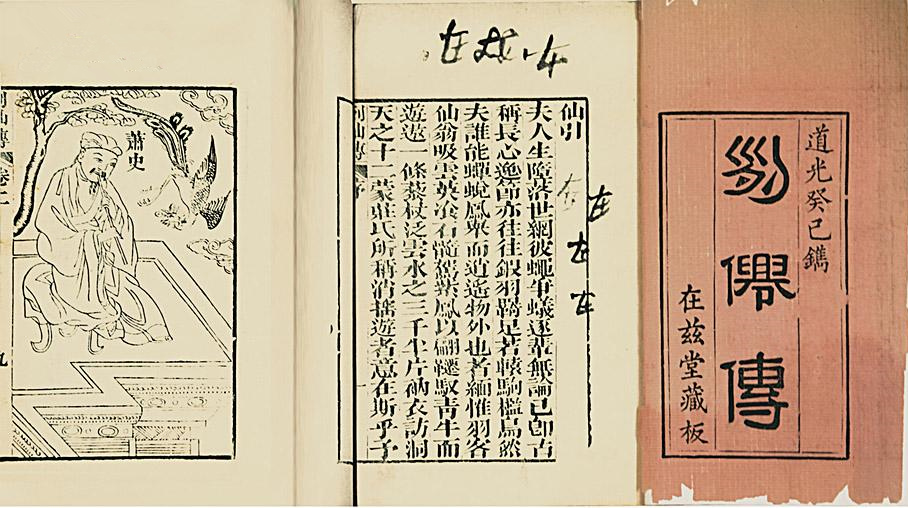 道光癸巳鐫
列僊傳
在茲堂藏板
仙引
夫人生墮落世網彼蠅爭蟻逐輩無論已卽古
稱長心逸節亦往往鎩羽踦足若轅駒檻鳥然
夫誰能蟬蛻鳳舉而逍遙物外也者緬惟羽客
仙翁吸雲英冶石髓駕紫鳳以翩躚馭青牛而
遊遨一條藜杖泛雲水之三千半片衲衣訪洞
天之十二蒙莊氏所稱消搖遊者意在斯乎予
列仙傳 序
一
在
在
在
在
蕭史
列仙傳 卷二
九